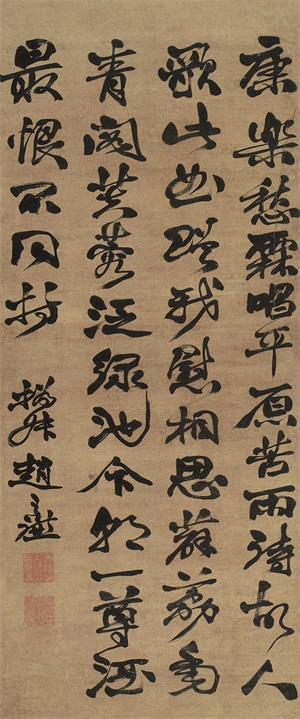 康樂愁霖唱平原苦雨詩故人
歌此曲貽我慰相思薜荔垂
青閣芙蓉泛綠池今朝一尊酒
最恨不同持
趙